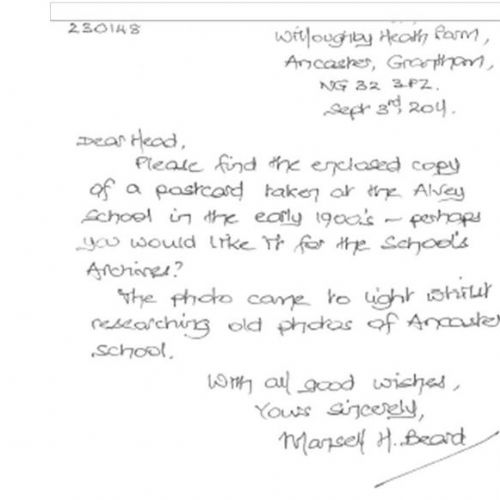 230148
Willoughby Heath Farm,
Ancaster, Grantham,
NG 32 3PZ.
Sept 3rd, 2011.
Dear Head,
Please find the enclosed copy
of a postcard taken at the Alvey
School in the early 1900's – perhaps
you would like it for the School's
Archives?
The photo came to light whilst
researching old photos of Ancaster
School.
With all good wishes,
Yours sincerely,
Mansell H. Beard